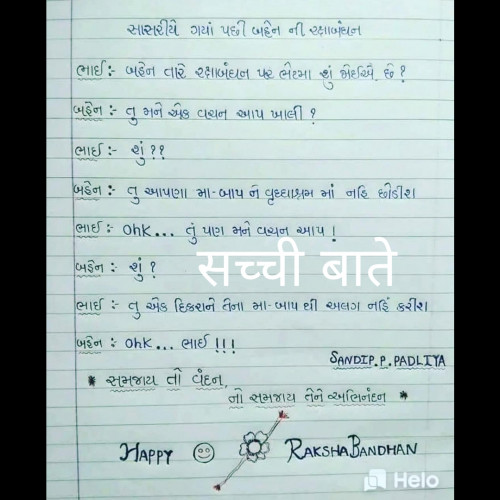 સાસરીયે ગયાં પછી બહેન ની રક્ષાબંધન
ભાઈ :- બહેન તારે રક્ષાબંધન પર ભેટમા શું જોઈએ છે ?
બહેન :- તુ મને એક વચન આપ ખાલી ?
ભાઈ :- શું ??
બહેન :- તુ આપણા મા-બાપ ને વૃધ્ધાશ્રમ માં નહિ છોડીશ
ભાઈ :- Ohk... તું પણ મને વચન આપ !
બહેન :- શું ?
सच्ची बाते
ભાઈ :- તુ એક દિકરાને તેના મા-બાપ થી અલગ નહિં કરીશ
બહેન :- Ohk... ભાઈ !!!
SANDIP.P.PADLIYA
* સમજાય તો વંદન,
નો સમજાય તેને અભિનંદન *
HAPPY RAKSHABANDHAN
Helo